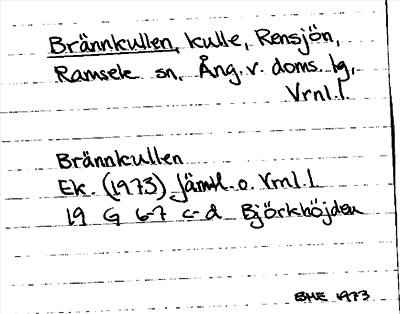 Brännkullen, kulle, Rensjön,
Ramsele sn, Ång. v. doms. lg,
Vrnl.l.
Brännkullen
Ek. (1973) Jämtl. o. Vrnl. l.
19 G 6-7 c-d Björkhöjden
BHE 1973